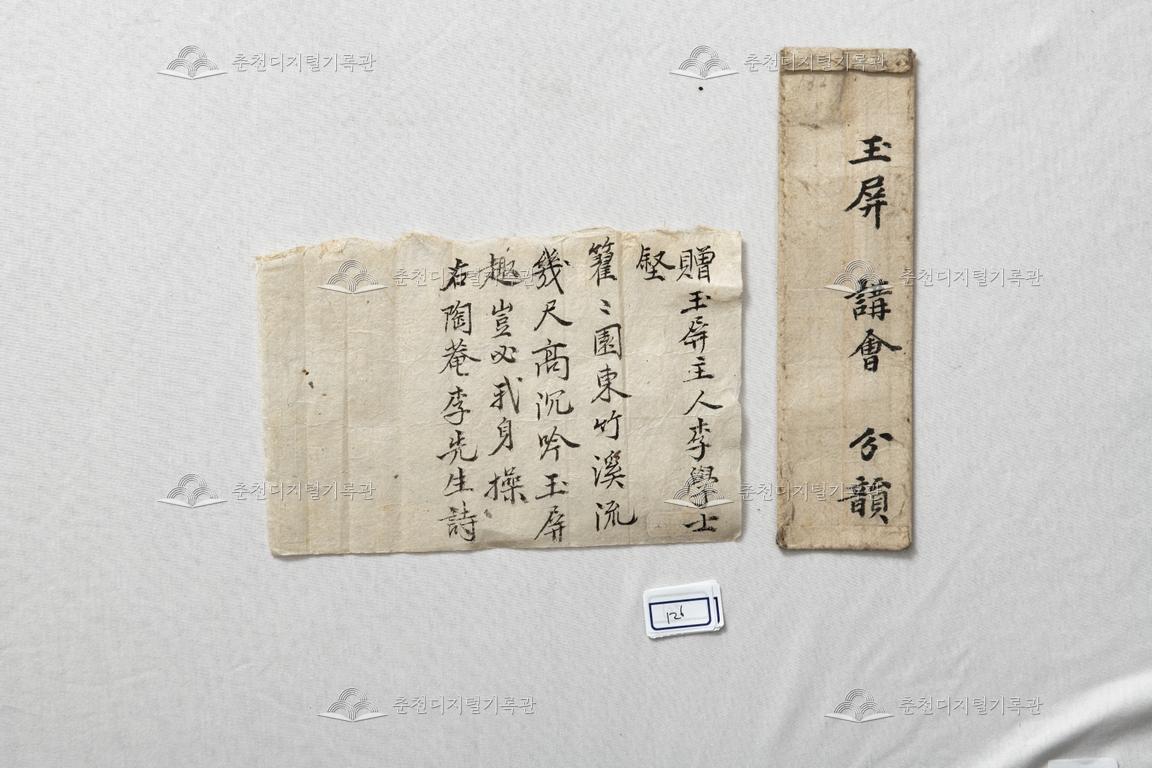 玉屏 講會 分韻
贈玉屏主人李學士
籊〻園東竹溪流
幾尺高沉吟玉屏
趣豈必我身操
右陶菴李先生詩
126
춘천디지털기록관
춘천디지털기록관
춘천디지털기록관
춘천디지털기록관
춘천디지털기록관
춘천디지털기록관
춘천디지털기록관
춘천디지털기록관